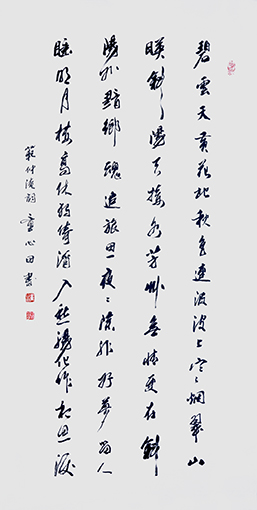 碧雲天黃花地秋色連波波上寒々烟翠山
暎斜陽天接水芳草無情更在斜
陽外黯鄉魂追旅思一夜々除非好夢留人
睡明月樓高休獨倚酒入愁腸化作相思淚
範仲淹詞童心田書